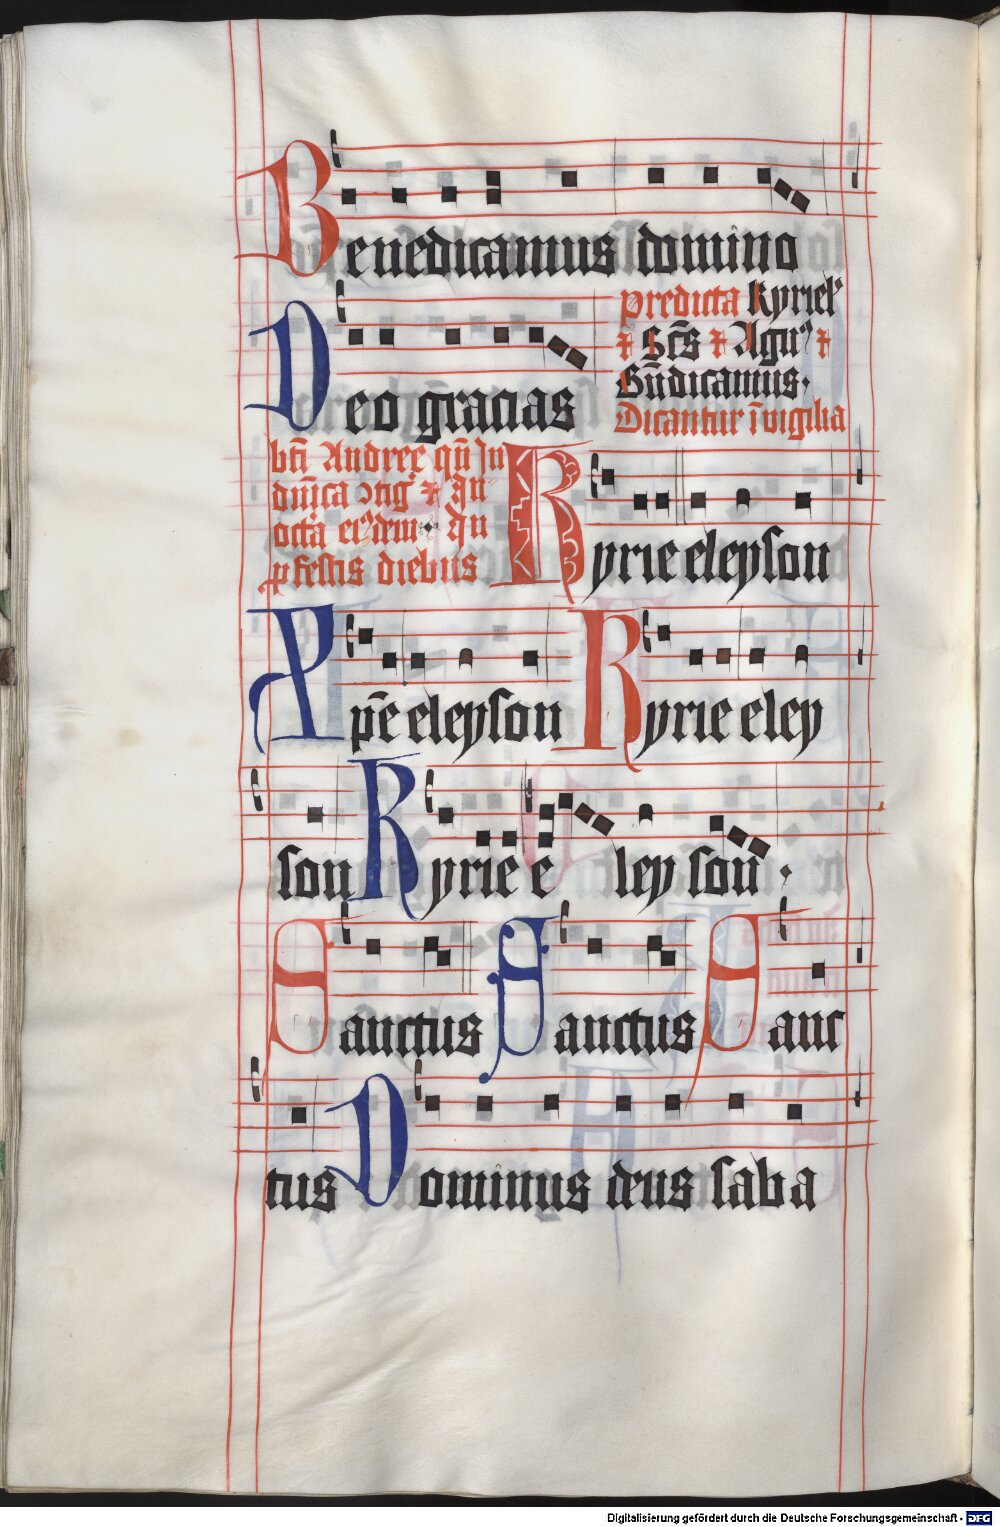 Benedicamus domino
Deo gracias
Predicta Kyriel'
⁊ Sc̄s ⁊ Agn' ⁊
Bn̄dicamus.
Dicantur ī vigilia
bt̄i Andree qn̄ In
dn̄ica ⁊ In
octa
p festis diebus
Kyrie eleyson
Xp̄e eleyson Kyrie eley
son Kyrie e ley son
Sanctus Sanctus Sanc
tus Dominus deus saba
Digitalisierung gefördert durch die Deutsche Forschungsgemeinschaft - DFG